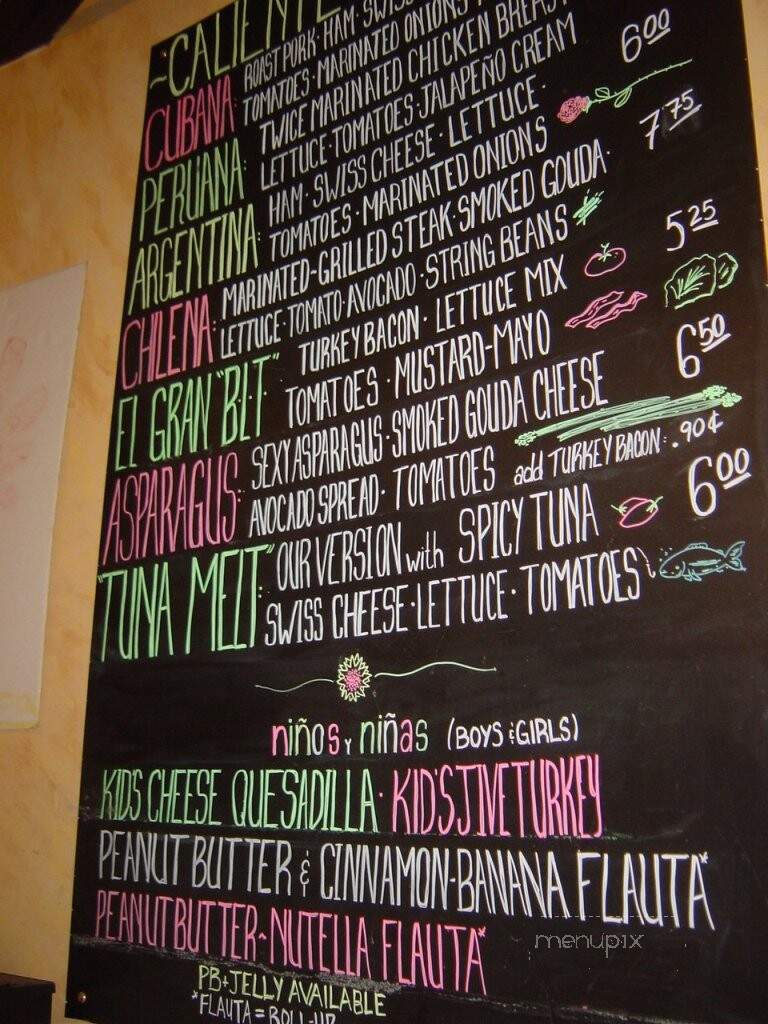 ~CALIENTE
CUBANA: ROAST PORK · HAM · SWISS
TOMATOES · MARINATED ONIONS
PERUANA: TWICE MARINATED CHICKEN BREAST
LETTUCE · TOMATOES · JALAPEÑO CREAM 6.00
ARGENTINA: HAM · SWISS CHEESE · LETTUCE ·
TOMATOES · MARINATED ONIONS 7.75
CHILENA: MARINATED-GRILLED STEAK · SMOKED GOUDA ·
LETTUCE · TOMATO · AVOCADO · STRING BEANS 5.25
EL GRAN "B·L·T" TURKEY BACON · LETTUCE MIX
TOMATOES · MUSTARD-MAYO 6.50
ASPARAGUS: SEXY ASPARAGUS · SMOKED GOUDA CHEESE
AVOCADO SPREAD · TOMATOES add TURKEY BACON: .90¢
6.00
"TUNA MELT": OUR VERSION with SPICY TUNA
SWISS CHEESE · LETTUCE · TOMATOES
niños y niñas (BOYS & GIRLS)
KID'S CHEESE QUESADILLA · KID'S JIVE TURKEY
PEANUT BUTTER & CINNAMON-BANANA FLAUTA*
PEANUT BUTTER ~ NUTELLA FLAUTA*
PB+JELLY AVAILABLE
*FLAUTA = ROLL-UP
menupix